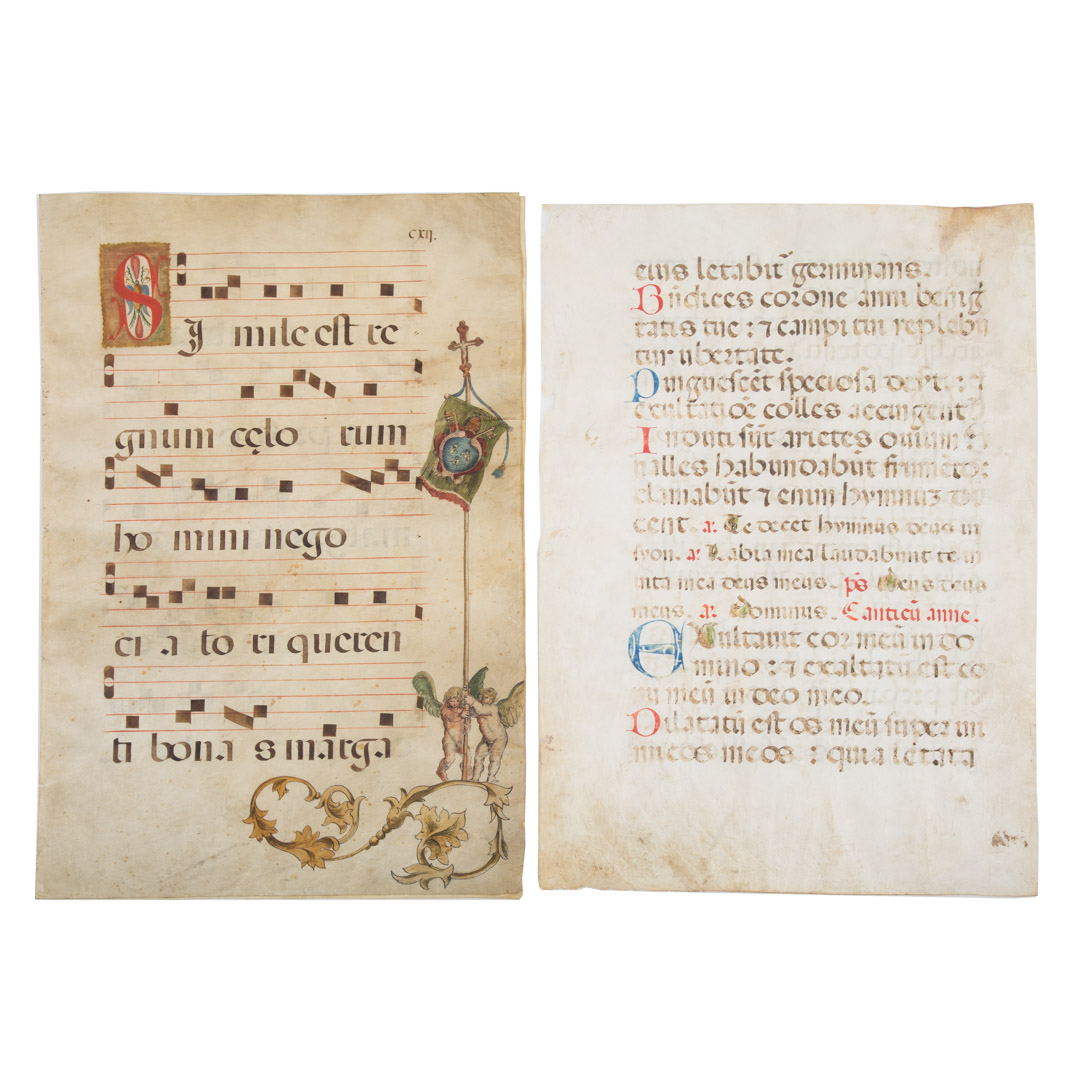 cxıı.
SI mile est re
gnum cęlo rum
ho mini nego
ci a to ri queren
ti bona s marga
eius letabit̃ germinans.
Bñdices corone anni benig
tatis tue : ⁊ campi tui replebũ
tur ubertate.
Pinguescẽt speciosa
exultatiõe colles accingent̃
Induti sũt arietes ouium
ualles habundabũt frumẽto:
clamabũt ⁊ enim hymnuꝫ di
cent. a. Te decet hymnus deus in
syon. a. Labia mea laudabunt te in
uita mea deus meus. p̃s Deus deus
meus. a. Dominus. Canticũ anne.
EXultauit cor meũ in do
mino : ⁊ exaltatũ est co
nu meũ in deo meo.
Dilatatũ est os meũ super ini
micos meos : quia letata